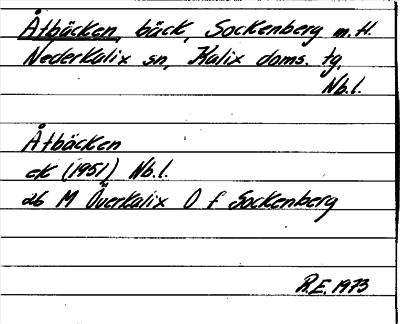 Åtbäcken, bäck, Sockenberg m. fl.
Nederkalix sn, Kalix doms. tg.
Nb.l.
Åtbäcken
ek (1951) Nb.l.
26 M Överkalix O f Sockenberg
R.E. 1973